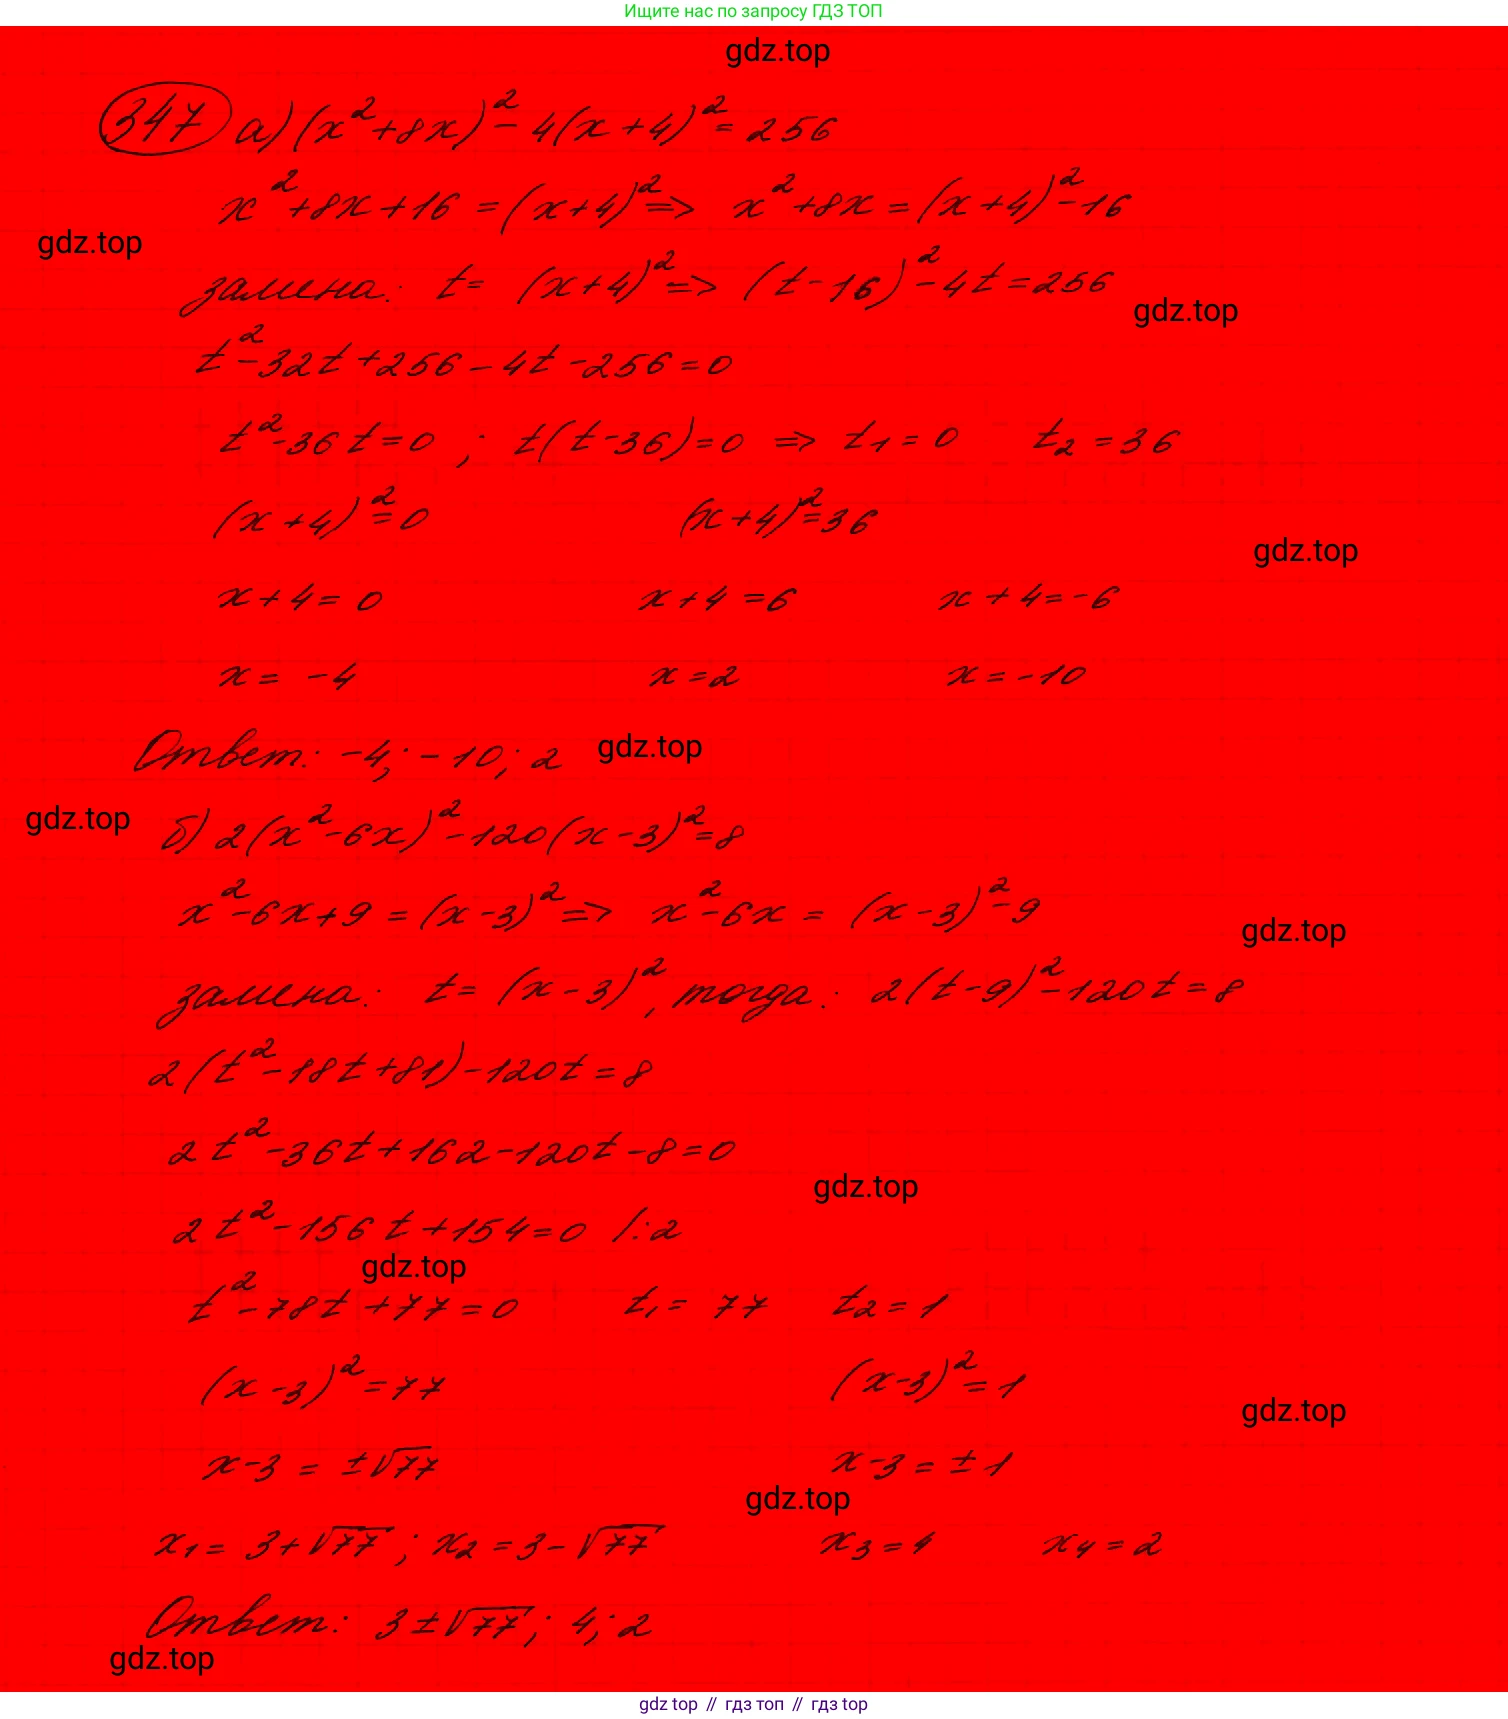 Ищите нас по запросу ГДЗ ТОП
gdz.top
347 а) (x²+8x)² - 4(x+4)² = 256
x²+8x+16 = (x+4)² => x²+8x = (x+4)²-16
gdz.top
замена: t = (x+4)² => (t-16)²-4t=256
gdz.top
t²-32t+256-4t-256=0
t²-36t=0 ; t(t-36)=0 => t₁=0 t₂=36
(x+4)²=0 (x+4)²=36
gdz.top
x+4=0 x+4=6 x+4=-6
x=-4 x=2 x=-10
Ответ: -4; -10; 2 gdz.top
gdz.top
б) 2(x²-6x)²-120(x-3)²=8
x²-6x+9=(x-3)² => x²-6x = (x-3)²-9
gdz.top
замена: t=(x-3)², тогда: 2(t-9)²-120t=8
2(t²-18t+81)-120t=8
2t²-36t+162-120t-8=0
gdz.top
2t²-156t+154=0 /:2
gdz.top
t²-78t+77=0 t₁=77 t₂=1
(x-3)²=77 (x-3)²=1
gdz.top
x-3=±√77 x-3=±1
gdz.top
x₁=3+√77; x₂=3-√77 x₃=4 x₄=2
Ответ: 3±√77; 4; 2
gdz.top
gdz top // гдз топ // гдз top